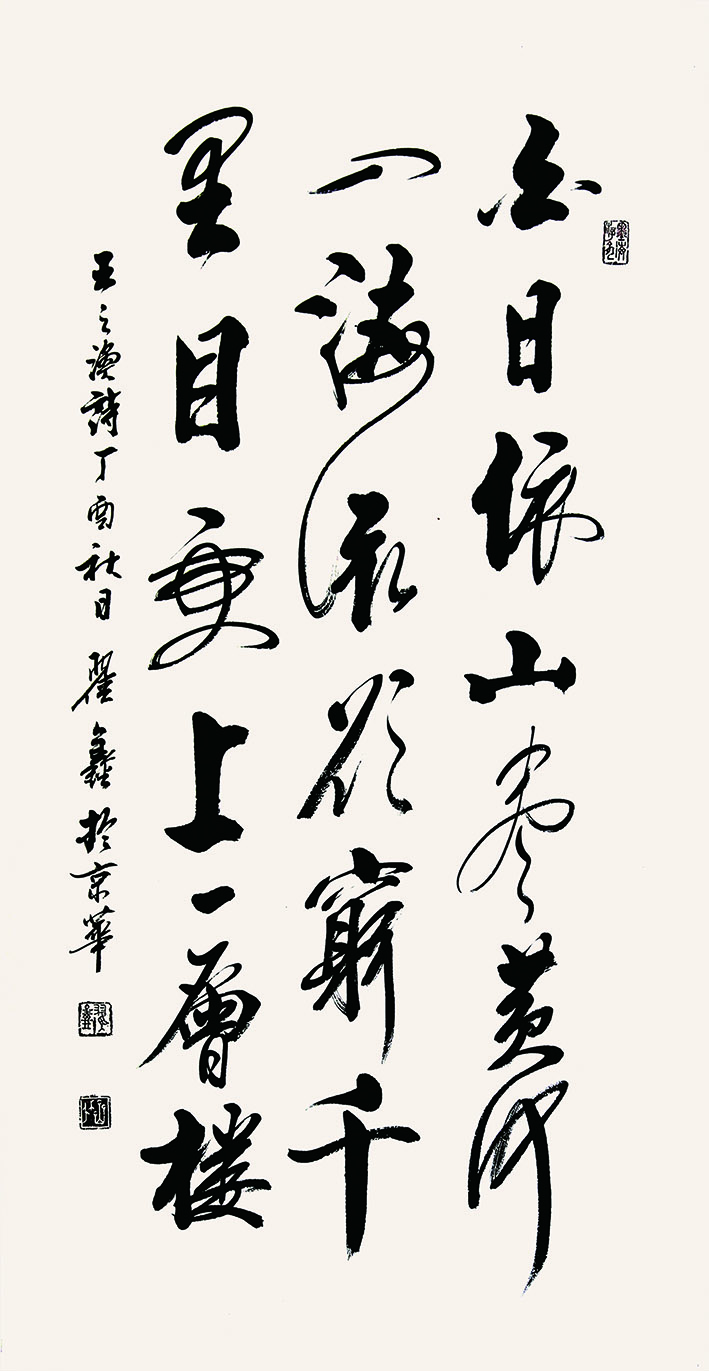 白日依山盡黄河
入海流欲窮千
里目更上一層楼
王之渙詩丁酉秋日翟鑫於京華